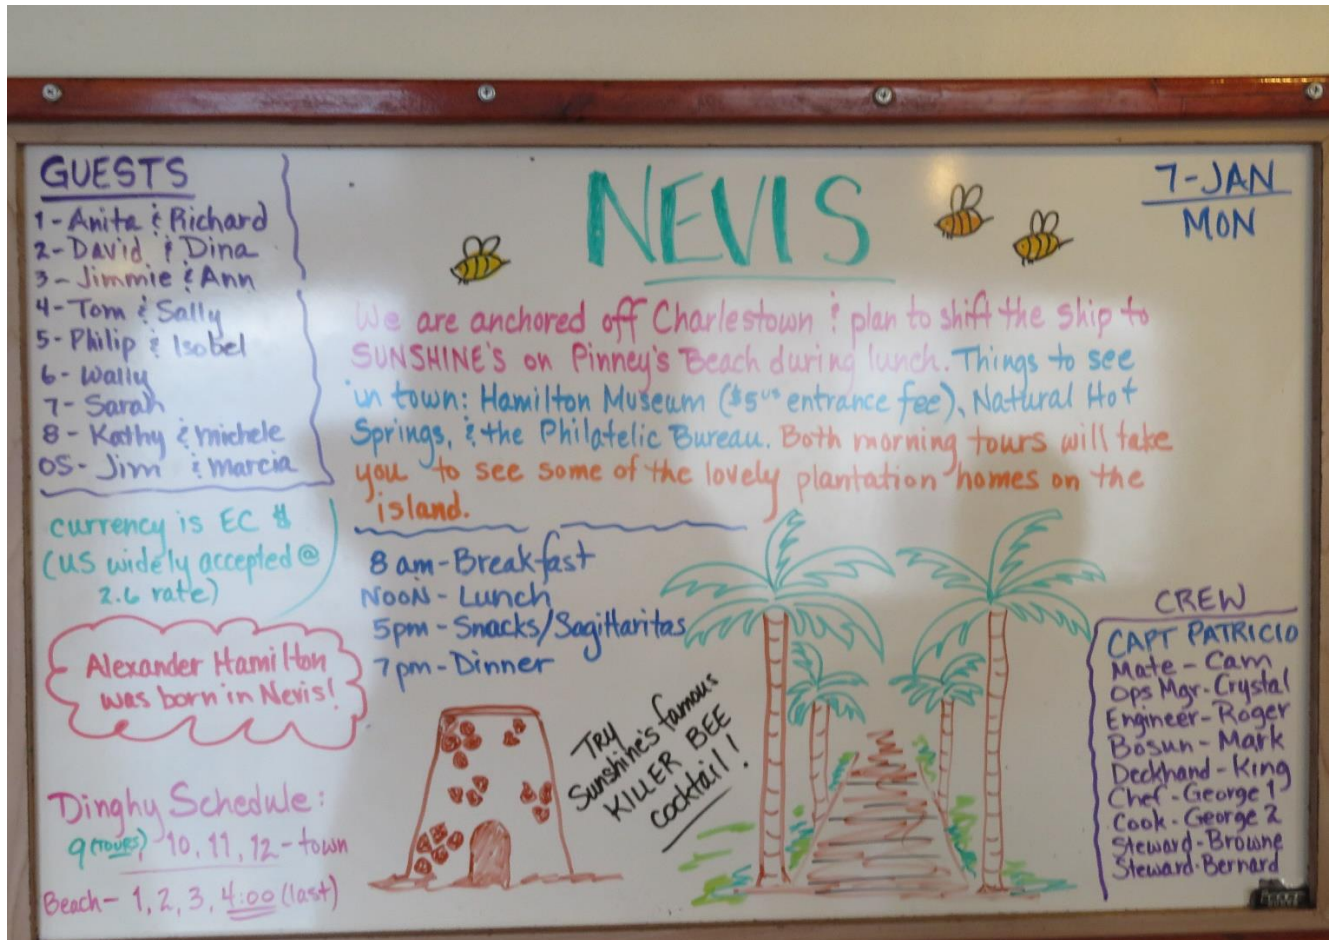 GUESTS
1 - Anita & Richard
2 - David & Dina
3 - Jimmie & Ann
4 - Tom & Sally
5 - Philip & Isobel
6 - Wally
7 - Sarah
8 - Kathy & michele
OS - Jim & marcia
currency is EC $
(US widely accepted @
2.6 rate)
Alexander Hamilton
was born in Nevis!
Dinghy Schedule:
9 (TOURS), 10, 11, 12 - town
Beach - 1, 2, 3, 4:00 (last)
NEVIS
We are anchored off Charlestown & plan to shift the ship to
SUNSHINE'S on Pinney's Beach during lunch. Things to see
in town: Hamilton Museum ($5 US entrance fee), Natural Hot
Springs, & the Philatelic Bureau. Both morning tours will take
you to see some of the lovely plantation homes on the
island.
8 am - Breakfast
NOON - Lunch
5pm - Snacks/Sagittaritas
7pm - Dinner
TRY
Sunshine's famous
KILLER BEE
cocktail!
7-JAN
MON
CREW
CAPT PATRICIO
Mate - Cam
Ops Mgr - Crystal
Engineer - Roger
Bosun - Mark
Deckhand - King
Chef - George 1
Cook - George 2
Steward - Browne
Steward - Bernard